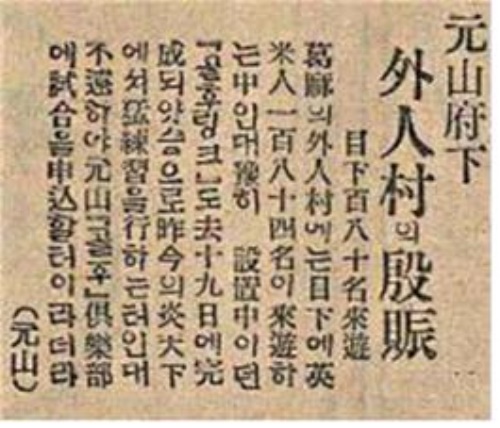 元山府下
外人村의殷賑
目下百八十名來遊
葛麻의外人村에는目下에英
米人一百八十四名이來遊하
는中인대豫히 設置中이던
『골후링크』도去十九日에完
成되얏슴으로昨今의炎天下
에서猛練習을行하는터인대
不遠하야元山『골후』俱樂部
에試合을申込할터이라더라
(元山)